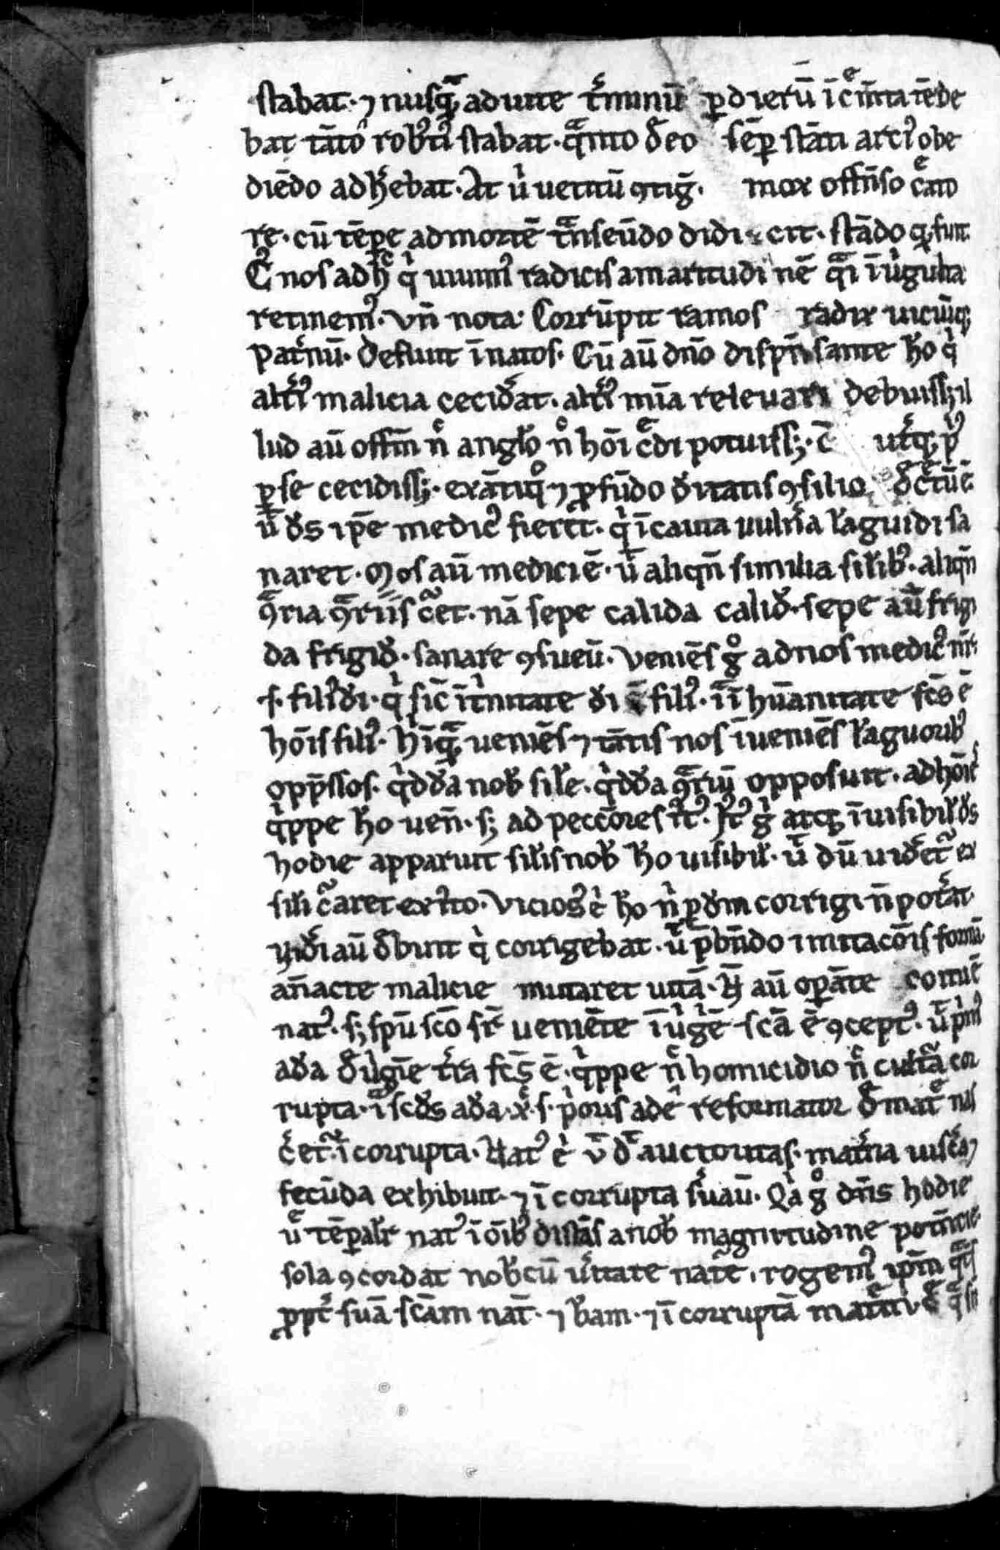 stabat · ⁊ nusq̄ ad uite t̓minū p dietū īc̄m̄ta tēde
bat tāto rob᷒ti᷒ stabat · q̄nto deo sēp stāti arci᷒ obe
diēdo adh̓ebat · At ū uetitū ꝯtiḡ · mox offēso c̓ato
re · cū tēpe ad mortē t̄nseūdo didicit · stādo
nos adh̓ q̓ uiuim᷒ radicis amaritudinē q̄i ī ūgulta
retinem᷒ · vn̄ nota · Corrūpit ramos radix
pat̓nū · defluit īnatos · Cū aū dn̄o dispēsante h̓o q̓
alt̓i᷒ malicia cecid̓at · alt̓i᷒ mīa releuari debuiss; il
lud aū off̄m n̄ anglo n̊ hōi c̓di potuiss; ·
p se cecidiss; · ex ātiq̊ ⁊ pfūdo d̓itatis ꝯsilio
ū d̓s ip̄e medic᷒ fieret · q̓ ī cauta uuln̓a lāguidi sa
naret · Mos aū medici ē · ū aliqn̄ similia sil̓ib᷒ · aliqn̄
ꝯ̄ria ꝯ̄riis c̓et · nā sepe calida calid᷒ · sepe aū frigi
da frigid᷒ · sanare ꝯsueū · veniēs g̊ ad nos medic᷒ nr̄
· s · fili᷒ di · q̓ sic ī t̓nitate di ē fili᷒ · īī hūanitate fc̄s ē
hōis fili᷒ · h̓ īq̄ ueniēs ⁊ tātis nos īueniēs lāguorib᷒
opp̄ssos · q̓dd̄a nob̓ sil̓e · q̓dd̄a ꝯ̄riū opposuit · ad hōīes
q̓ppe h̓o uen̄ · s; ad peccōres iu᷒t᷒ · g̓ atq; īuisibil̓ d̓s
hodie apparuit sil̓is nob̓ h̓o uisibil̓ · ū dū uid̓et᷒ ex
sil̓i c̓aret ex · Vicios᷒ · h̓o n̓ p d̓m corrigi n̄ pot̓at
uid̓i aū d̓buit q̓ corrigebat · ū p̄bn̄do imitacōis formā
an̄acte malicie mutaret uitā · H̄ aū opāte
nat᷒ · s; sp̄u sc̄o sr̄ ueniēte ī ūgīē scā ē ꝯcept᷒ · ū p̓m᷒
ada d̓ ūgīe t̓ra fc̄s ē · q̓ppe n̄ homicidio n̄ cultā cor
rupta · ī scd̓s ada · x̄ · s · p̓oris ade reformator d̓ mat̓ nas
c̓et᷒ īcorrupta · Nat᷒ ē v̄ d̓ auctoritas · mat̓na uisc̓a
fecūda exhibuit · ⁊ īcorrupta s̓uau̓ · Q̓a g̊ dn̄s hodie
ū tēpalr̄ nat᷒ ī oīb᷒ distās a nob̓ magnitudine potēcie
sola ꝯcordat nob̓cū u̓itate nat̓e · rogem᷒ ip̄m q̄s
ppt̓ suā scām nat̓ · ⁊ b̄am · ⁊ īcorruptā